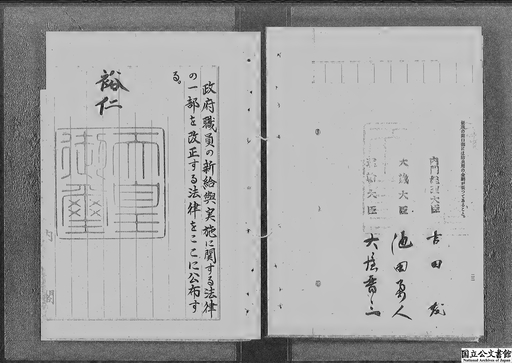 政府職員の新給與実施に関する法律
の一部を改正する法律をここに公布す
る。
裕仁
天皇
御璽
内閣総理大臣 吉田茂
大蔵大臣 池田勇人
大臣
国立公文書館
National Archives of Japan